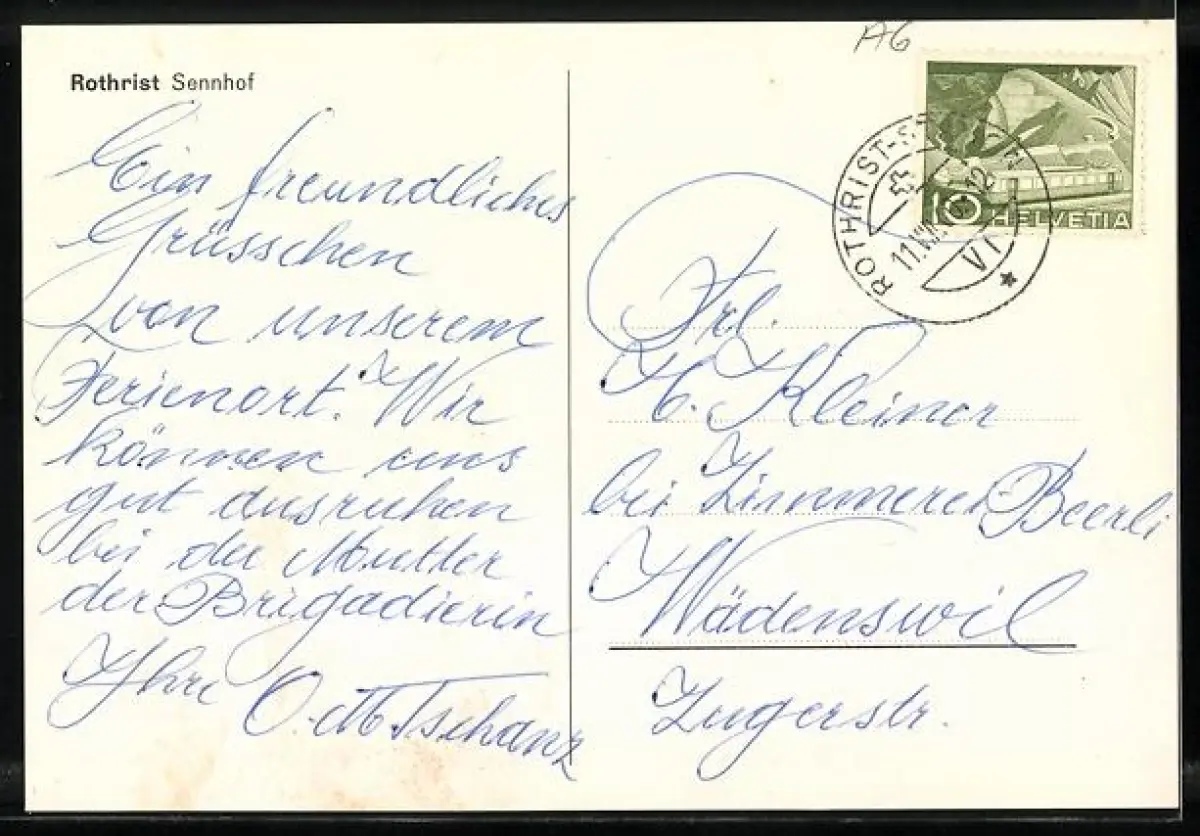 AG
Rothrist Sennhof
Ein freundliches
Grüsschen
von unserem
Ferienort. Wir
können uns
gut ausruhen
bei der Mutter
der Brigadierin
Ihre O. M. Tschanz
ROTHRIST-
11.VII. 12
VI
10 HELVETIA
Frl.
H. Kleiner
bei Zimmerei-Beerli
Wädenswil
Zugerstr.